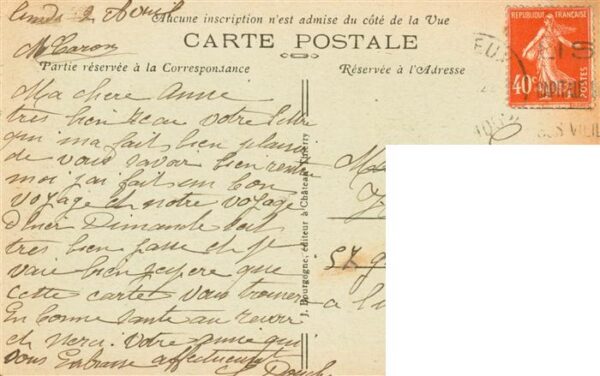 Lundi 2 Avril
Aucune inscription n'est admise du côté de la Vue
M Caron
CARTE POSTALE
Partie réservée à la Correspondance
Réservée à l'Adresse
RÉPUBLIQUE FRANÇAISE
40c
POSTES
Ma chere Amie
tres bien recu votre lettre
qui ma fait bien plaisir
de vous savoir bien
moi jai fait un bon
voyage et notre voyage
d'hier Dimanche sait
tres bien passe et je
vais bien jespere que
cette carte vous trouvera
En bonne sante au revoir
et merci votre amie qui
vous Embrasse affectueusement
J. Bourgogne, éditeur à Château-Thierry